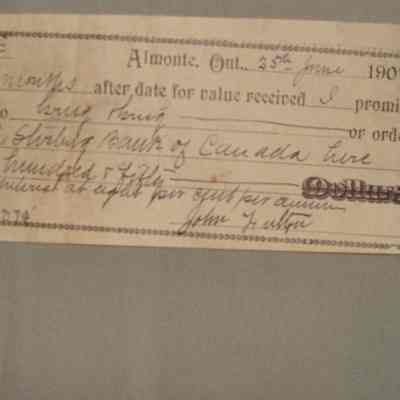 Almonte, Ont., 25th June 190
months after date for value received I promi
or orde
Sterling Bank of Canada here
hundred & fifty Dollars
interest at eight per cent per annum
John Fulton